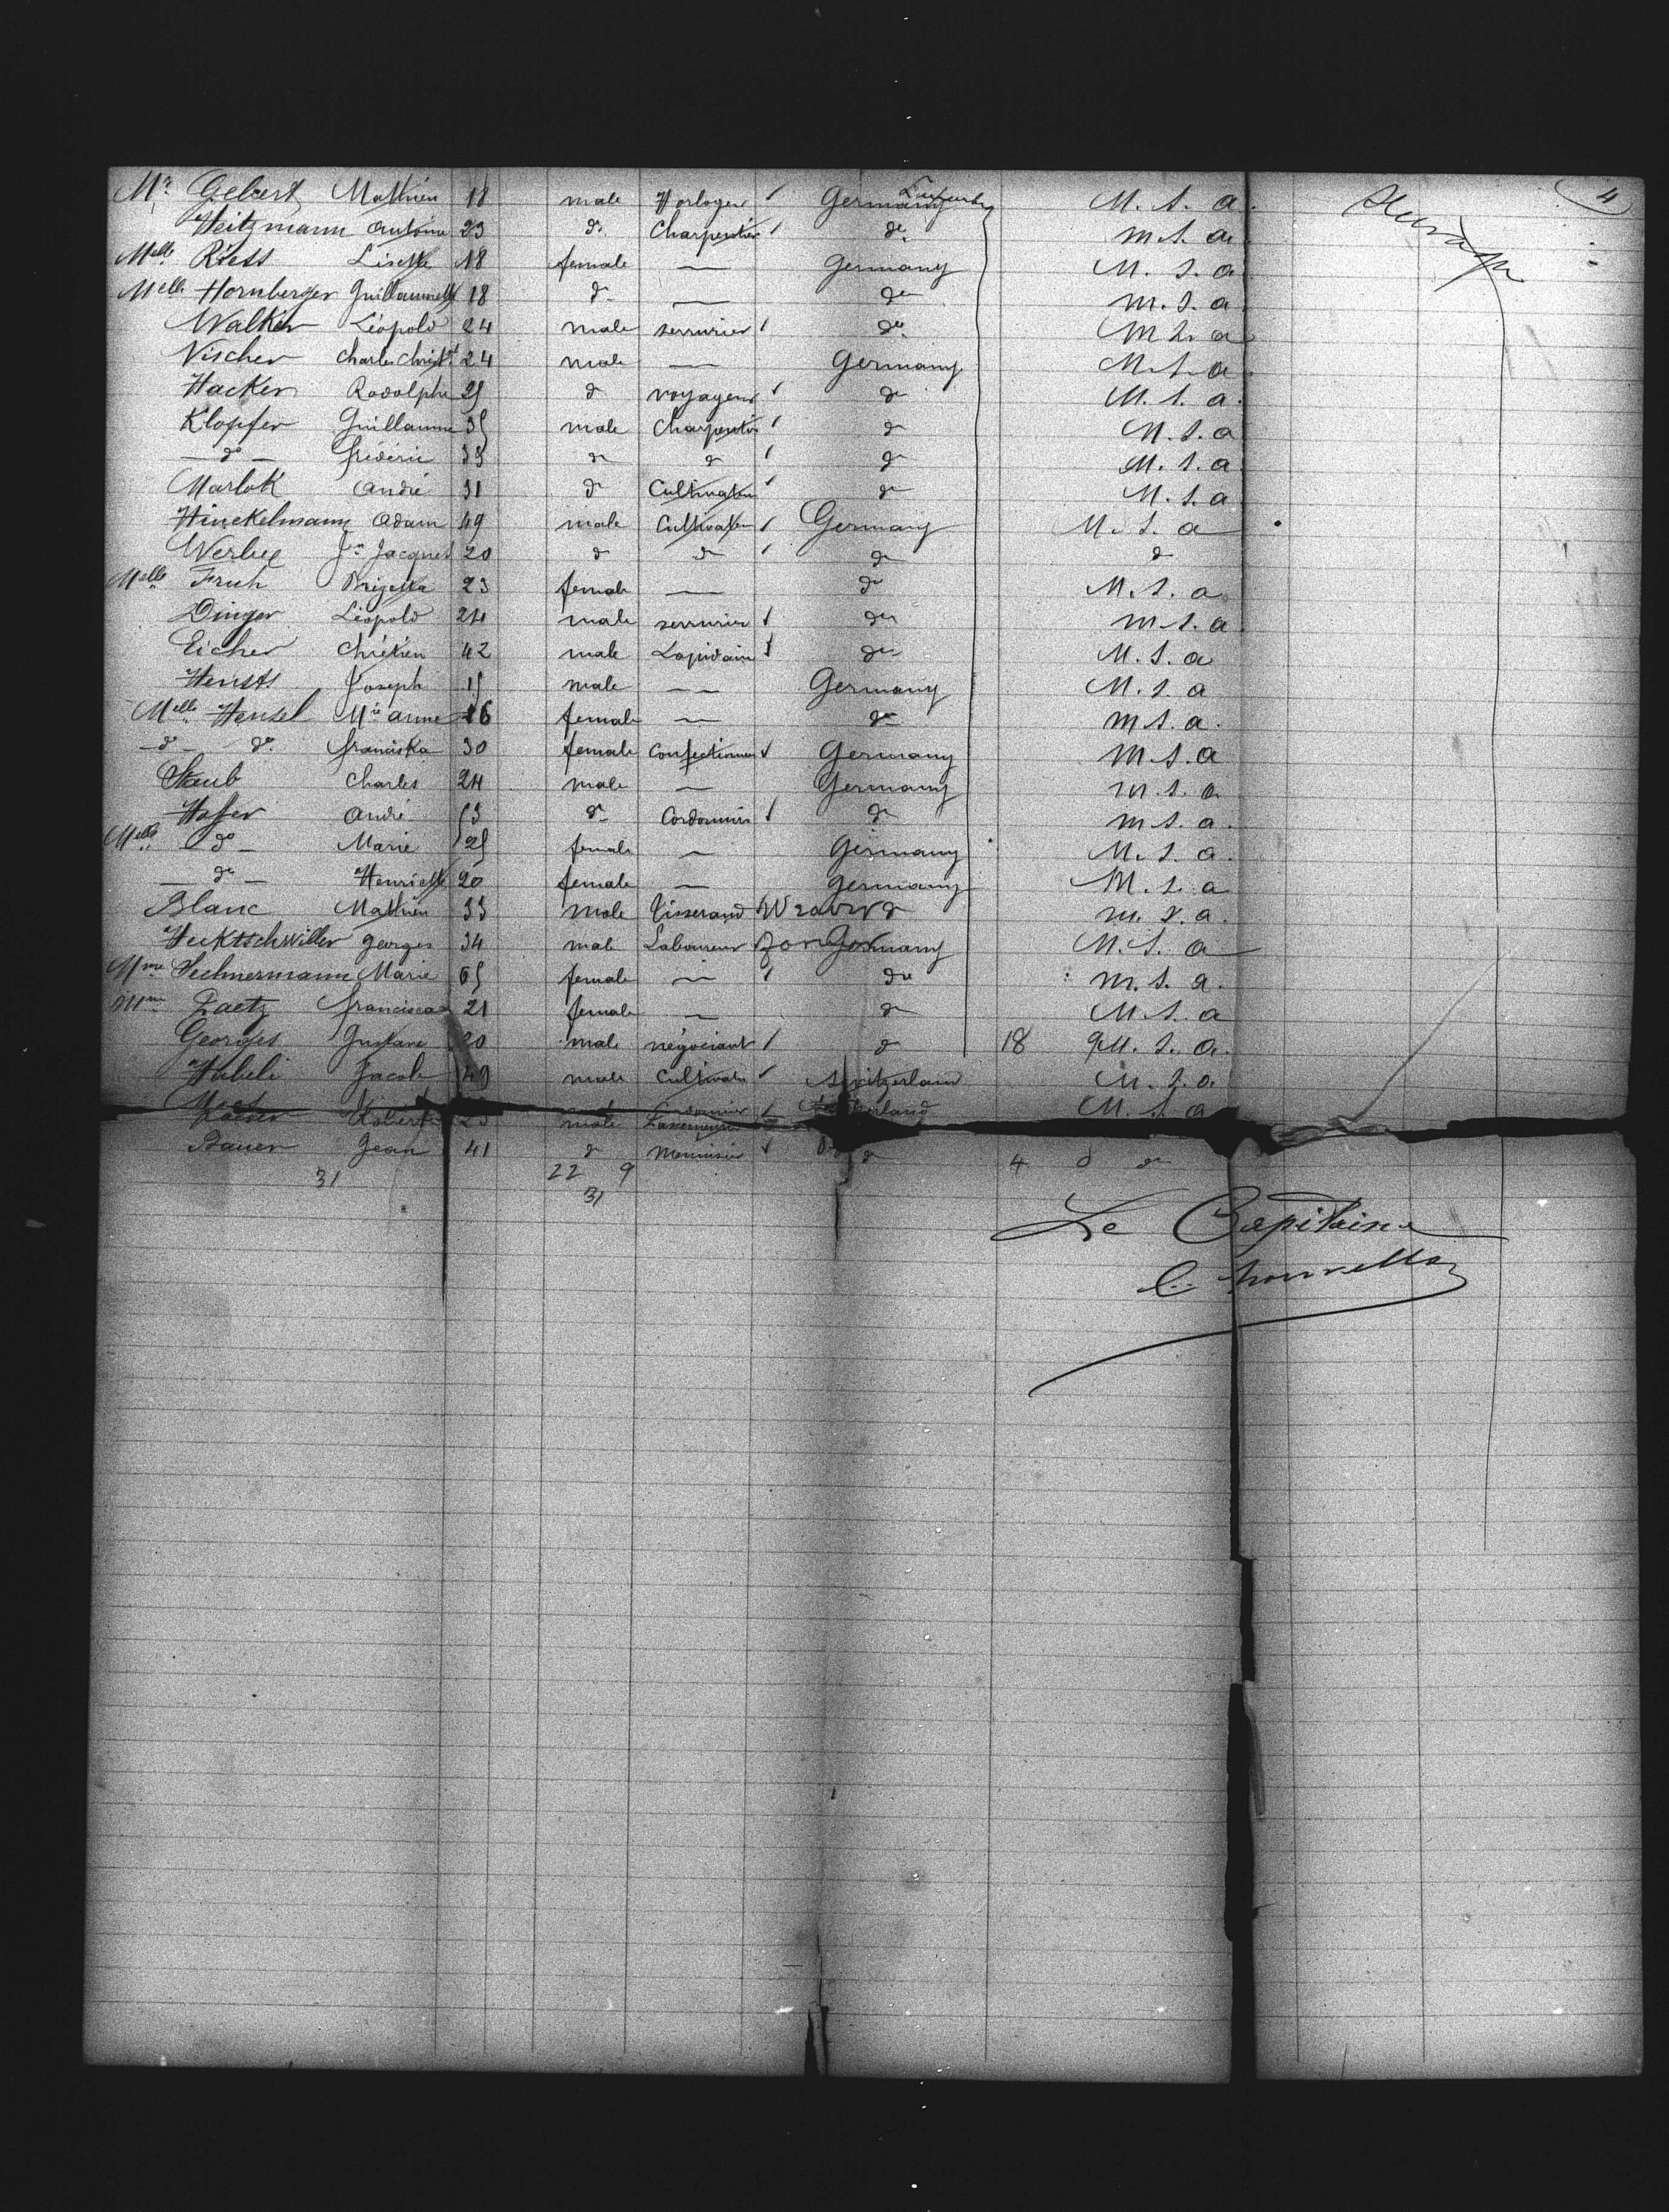 4
Mr Gebert Mathieu 18 male Horloger Germany Luxemburg M. S. a. Steerage
Heitzmann Antoine 23 do Charpentier do M. S. a.
Melle Riess Lisette 18 female — Germany M. S. a.
Melle Hornberger Guillaumette 18 do — do M. S. a.
Walker Léopold 24 male serrurier do M. S. a
Vischer Charles Christ. 24 male — Germany M. S. a.
Hacker Rodolphe 25 do voyageur do M. S. a.
Klopfer Guillaume 35 male Charpentier do M. S. a
— do — Frédéric 38 do do do M. S. a.
Marlok André 31 do Cultivateur do M. S. a
Hinckelmann Adam 49 male Cultivateur Germany M. S. a
Jn Jacques 20 do do do do
Melle Fruh 23 female — do M. S. a.
Dinger Léopold 24 male serrurier do M. S. a.
Eicher Chrétien 42 male Lapidaire do M. S. a
Joseph 15 male — Germany M. S. a
Melle Hensel Mie anne 26 female — do M. S. a.
— do — do Franciska 30 female Confectionneuse Germany M. S. a
Staub Charles 24 male — Germany M. S. a
Hoffer André 53 do Cordonnier do M. S. a.
Melle do — Marie 25 female — Germany M. S. a.
— do — Henriette 20 female — Germany M. S. a
Blanc Mathieu 33 male Tisserand Weaver do M. S. a.
Georges 34 male Laboureur Germany M. S. a
Mme Marie 65 female — do M. S. a.
Mme Francisca 21 female — do M. S. a
Georges Gustave 20 male négociant do 18 M. S. a.
Habeli Jacob 49 male Cultivateur Switzerland M. S. a
Robert 23 male M. S. a
Bauer Jean 41 do Menuisier do 4 do do
31 22 9
31
Le Capitaine